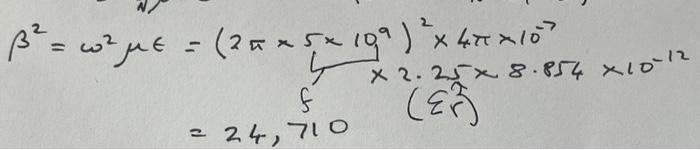 β² = ω²με = (2π × 5 × 10⁹)² × 4π × 10⁻⁷
× 2.25 × 8.854 × 10⁻¹²
f (εr)
= 24,710